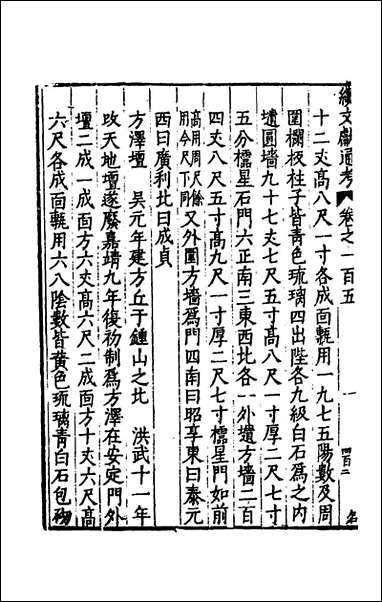 續文獻通考 卷之一百五 一 四百二
十二丈高八尺一寸各成面甎用一九七五陽數及周
圍欄板柱子皆青色琉璃四出陛各九級白石爲之内
壝圓墻九十七丈七尺五寸高八尺一寸厚二尺七寸
五分櫺星石門六正南三東西北各一外壝方墻二百
四丈八尺五寸高九尺一寸厚二尺七寸櫺星門如前
高用周尺餘
用今尺下同
又外圍方墻爲門四南曰昭享東曰泰元
西曰廣利北曰成貞
方澤壇 吳元年建方丘于鍾山之北 洪武十一年
改天地壇遂廢嘉靖九年復初制爲方澤在安定門外
壇二成一成面方六丈高六尺二成面方十丈六尺高
六尺各成面甎用六八陰數皆黄色琉璃青白石包砌